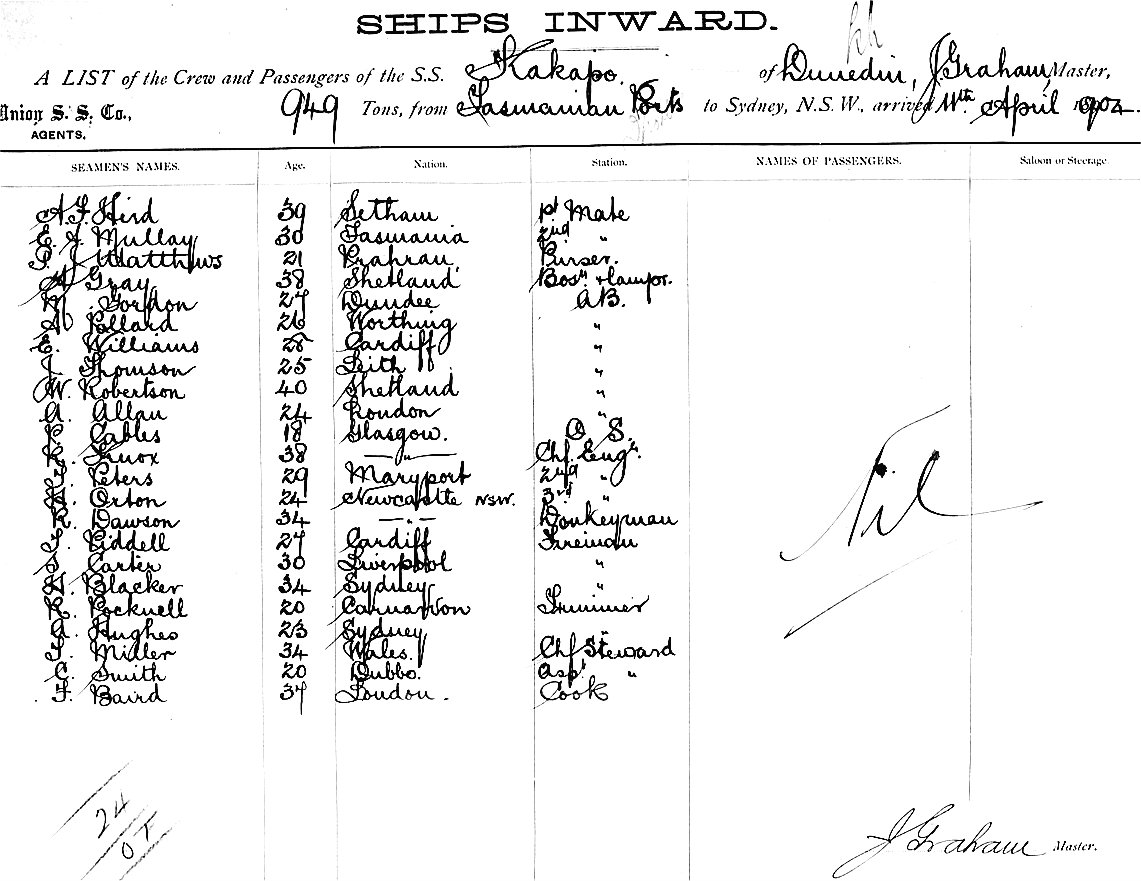 SHIPS INWARD.
A LIST of the Crew and Passengers of the S.S. Kakapo. of Dunedin, J. Graham, Master,
Union S. S. Co., 949 Tons, from Tasmanian Ports to Sydney, N.S.W., arrived 11th April 1904.
AGENTS.
SEAMEN'S NAMES. Age. Nation. Station. NAMES OF PASSENGERS. Saloon or Steerage
A. F. Hird 39 1st Mate
E. J. Mullay 30 Tasmania 2nd "
P. J. Matthews 21 Prahran Purser.
A. Gray 38 Shetland Bosn & Lampr.
Gordon 27 Dundee A.B.
A. Pollard 26 Worthing "
E. Williams 28 Cardiff "
J. Thomson 25 Leith "
W. Robertson 40 Shetland "
A. Allan 24 London "
Cables 18 Glasgow. O. S.
R. Knox 38 " Chf. Engr.
Peters 29 Maryport 2nd "
H. Orton 24 Newcastle NSW. 3rd "
R. Dawson 34 " Donkeyman
Riddell 27 Cardiff Fireman
S. Carter 30 Liverpool "
H. Blacker 34 Sydney "
R. Rocknell 20 Carnarvon Trimmer
A. Hughes 23 Sydney "
Miller 34 Wales. Chf Steward
C. Smith 20 Dubbo. "
F. Baird 37 London. Cook
Nil
24
J Graham Master.